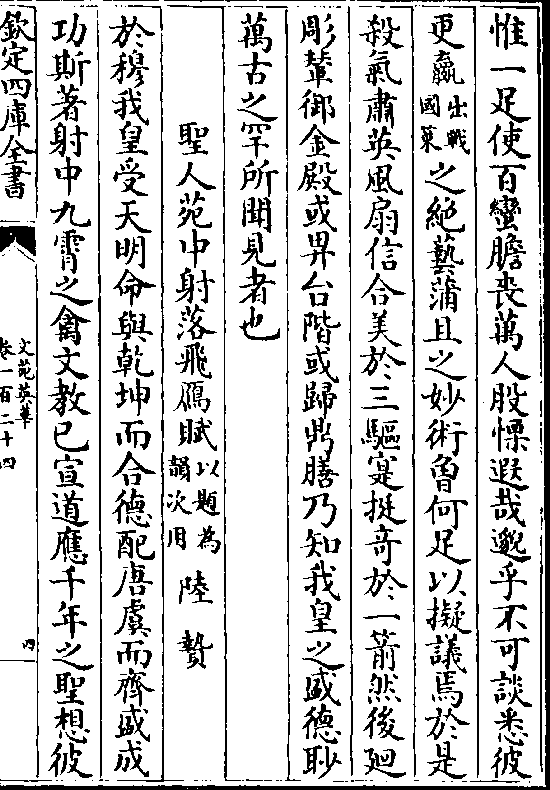 惟一足使百蠻膽喪萬人股慄遐哉邈乎不可談悉彼
更羸出戰國策之絶藝蒲且之妙術曾何足以擬議焉於是
殺氣肅英風扇信合美於三驅寔挺竒於一箭然後廻
彫輦御金殿或畀台階或歸鼎膳乃知我皇之盛德眇
萬古之罕所聞見者也
聖人苑中射落飛鴈賦以題為韻次用 陸贄
於穆我皇受天明命與乾坤而合德配唐虞而齊盛成
功斯著射中九霄之禽文教已宣道應千年之聖想彼
欽定四庫全書
文苑英華
卷一百二十四
四